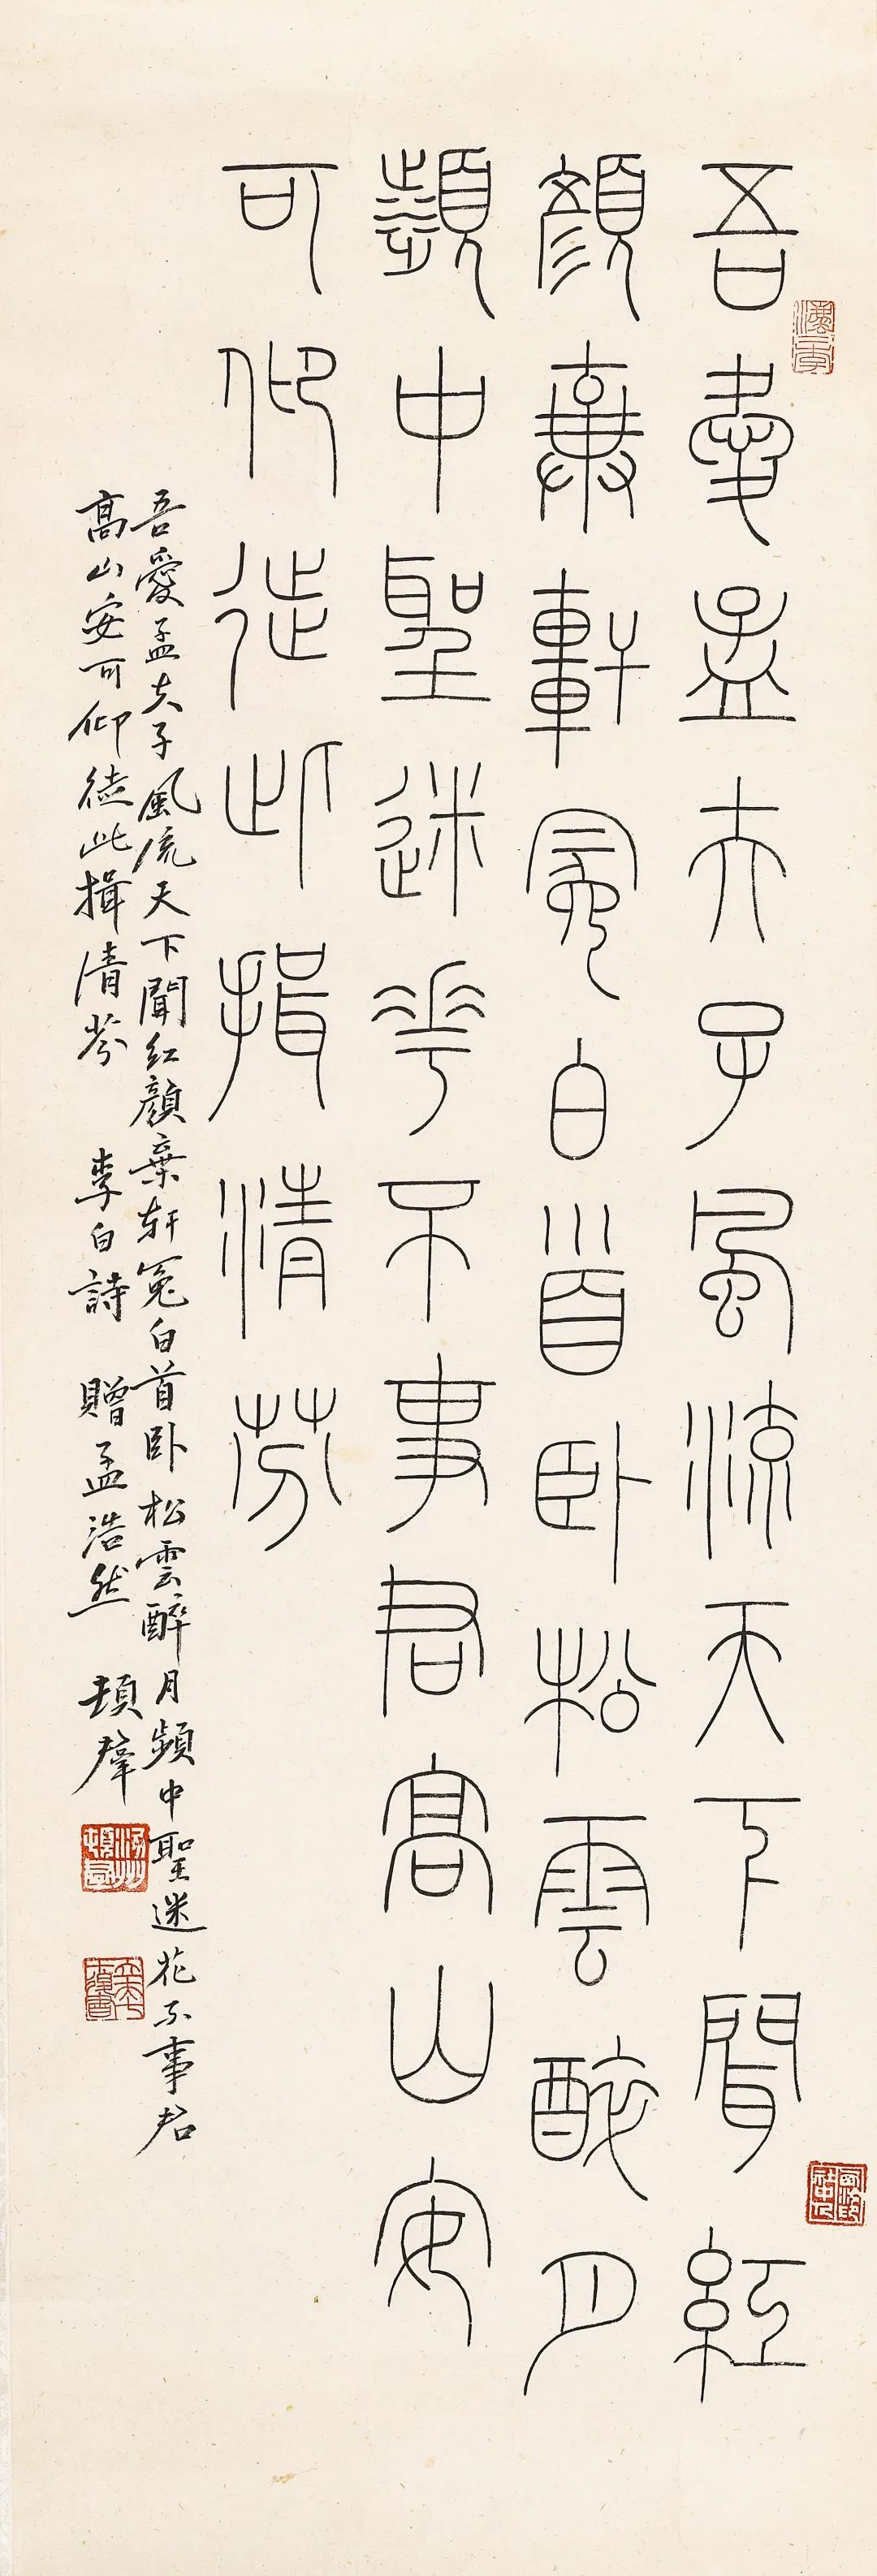 吾愛孟夫子風流天下聞紅
顏棄軒冕白首臥松雲醉月
頻中聖迷花不事君高山安
可仰徒此揖清芬
吾愛孟夫子風流天下聞紅顏棄軒冕白首臥松雲醉月頻中聖迷花不事君
高山安可仰徒此揖清芬 李白詩 贈孟浩然 頓群